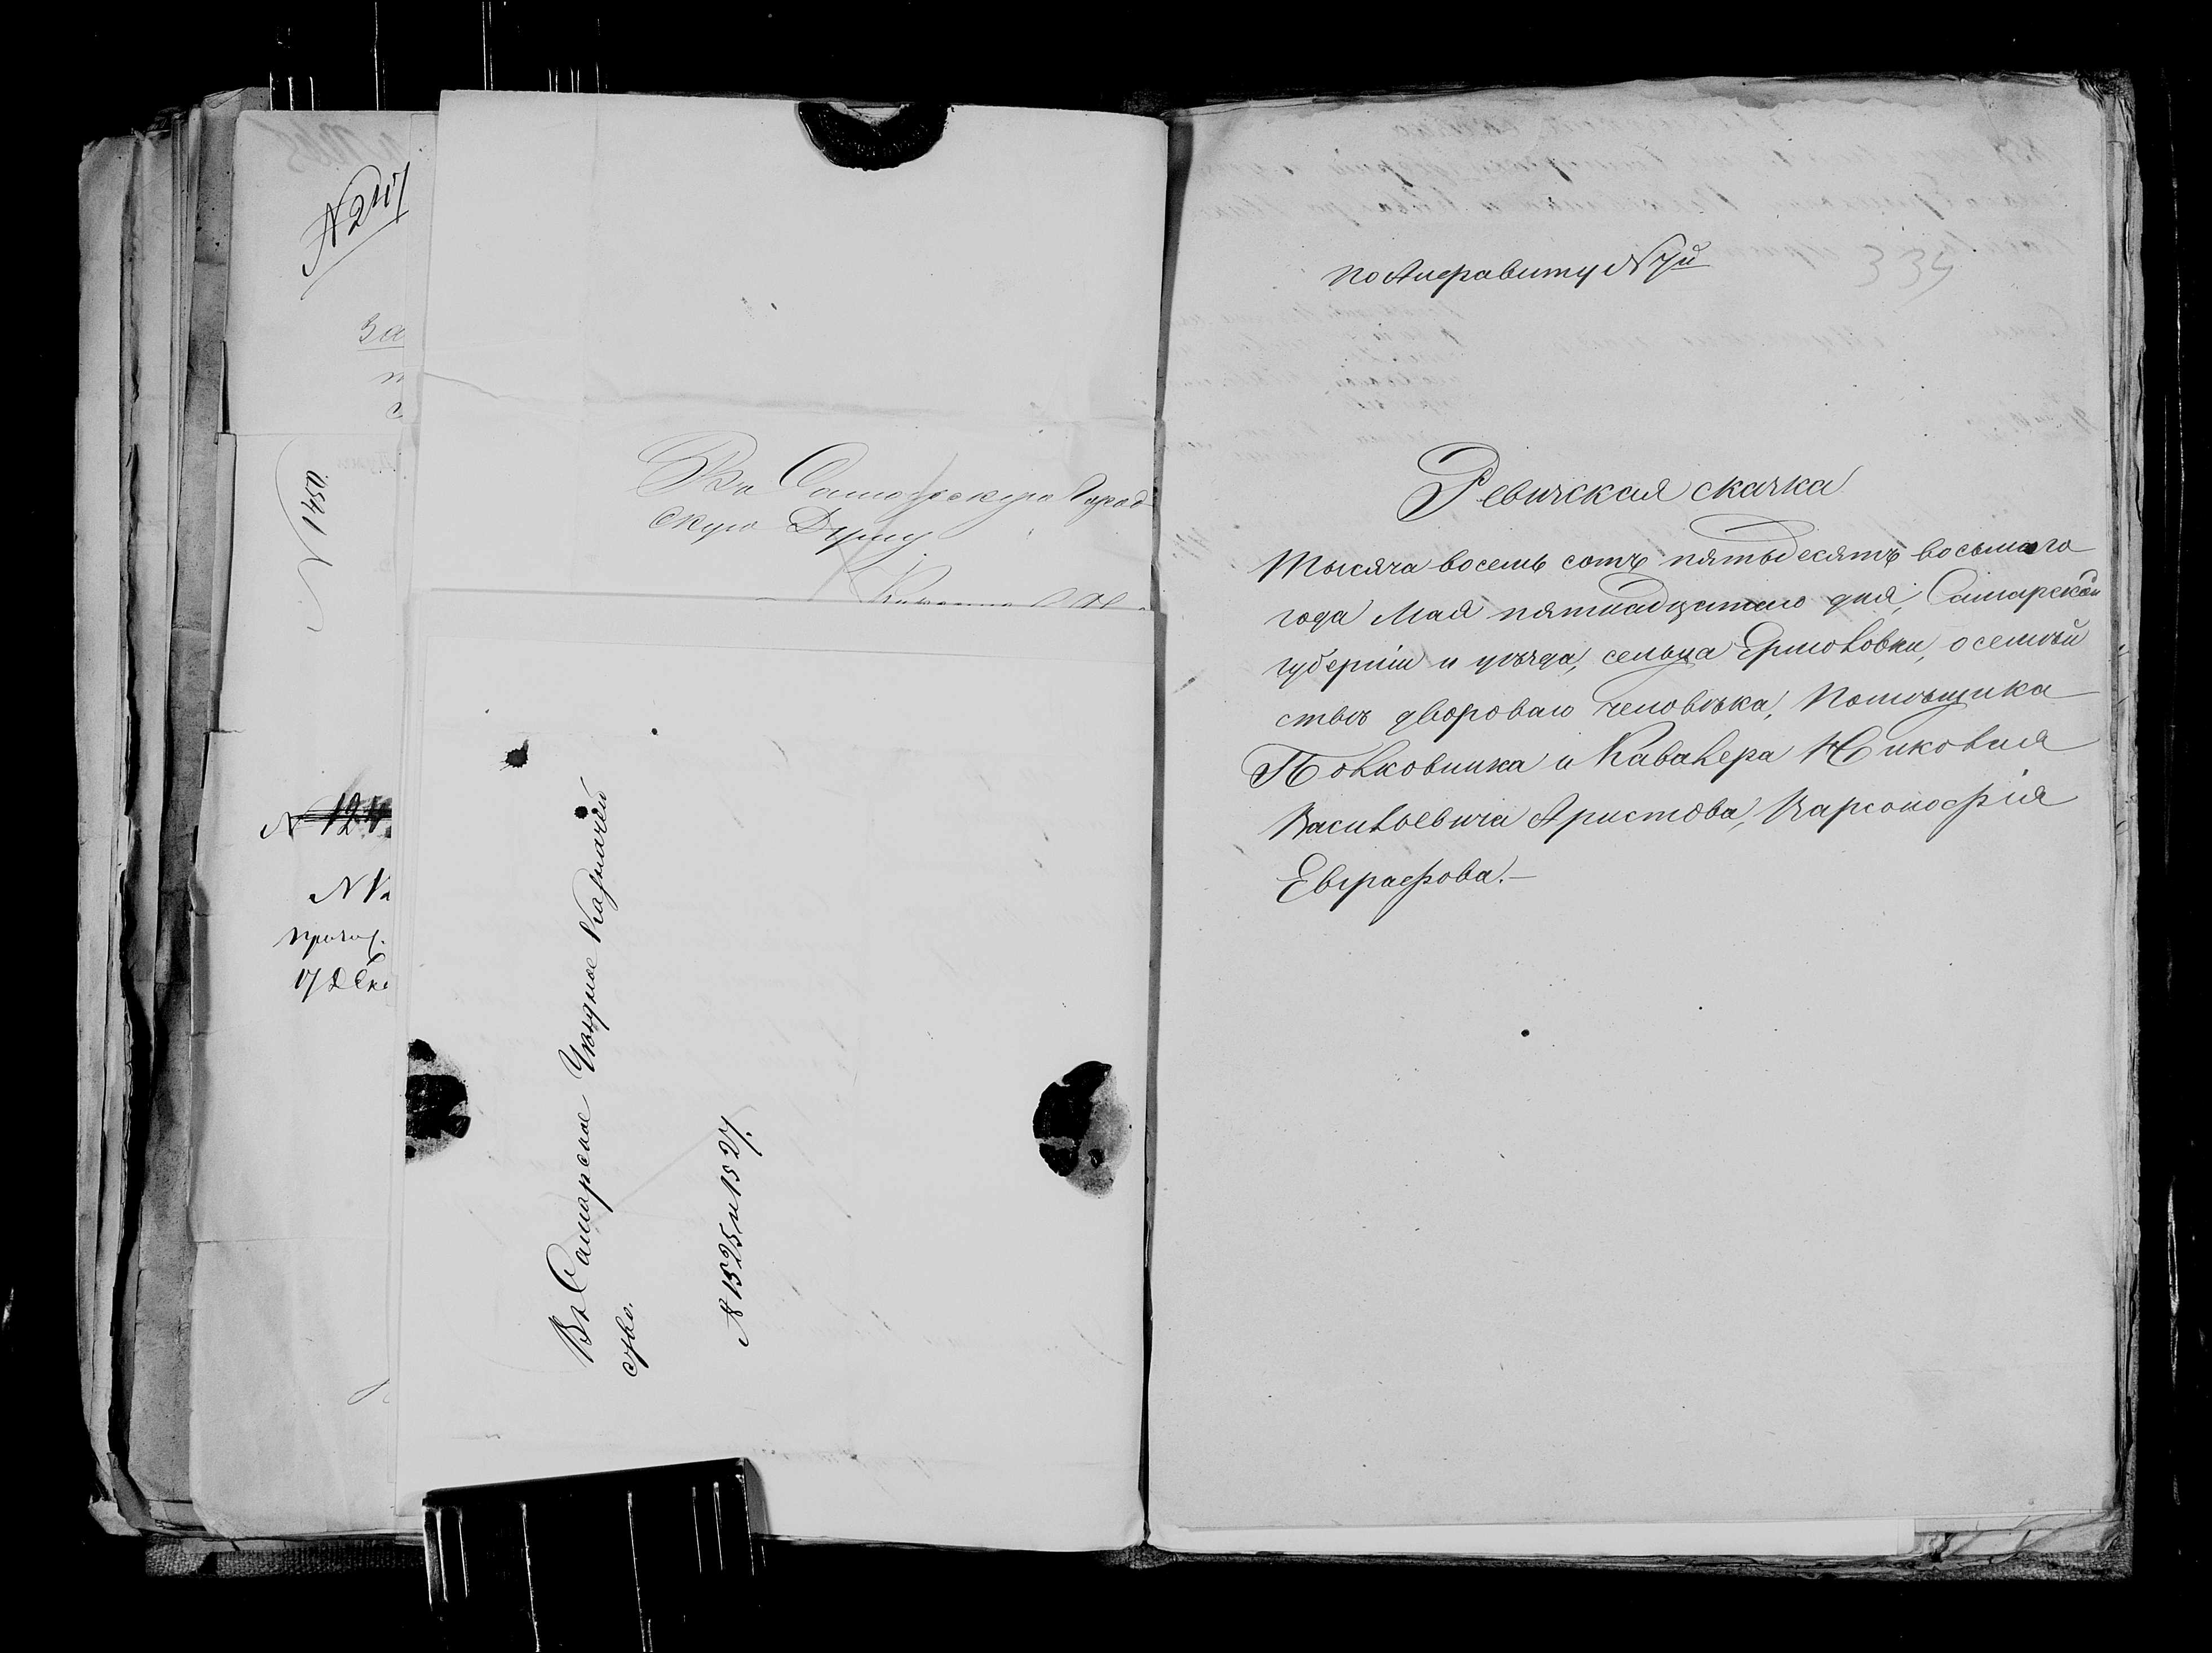 N 247
За
N 1450.
N 124
N 12
17 Дек
Въ Самарскую Город-
скую Думу
Въ Самарское Уѣздное Казначей
ство.
№ 1525 и 1527.
334
по Алфавиту N 7й
Ревижская скачка
Тысяча восемь сотъ пятьдесятъ восьмаго
года Мая пятнадцатаго дня, Самарской
губерніи и уѣзда, сельца Ермоловки, о семѣй
ствѣ двороваго человѣка, Помѣщика
Полковника и Кавалера Николая
Васильевича Аристова, Варсонофія
Евграфова.—